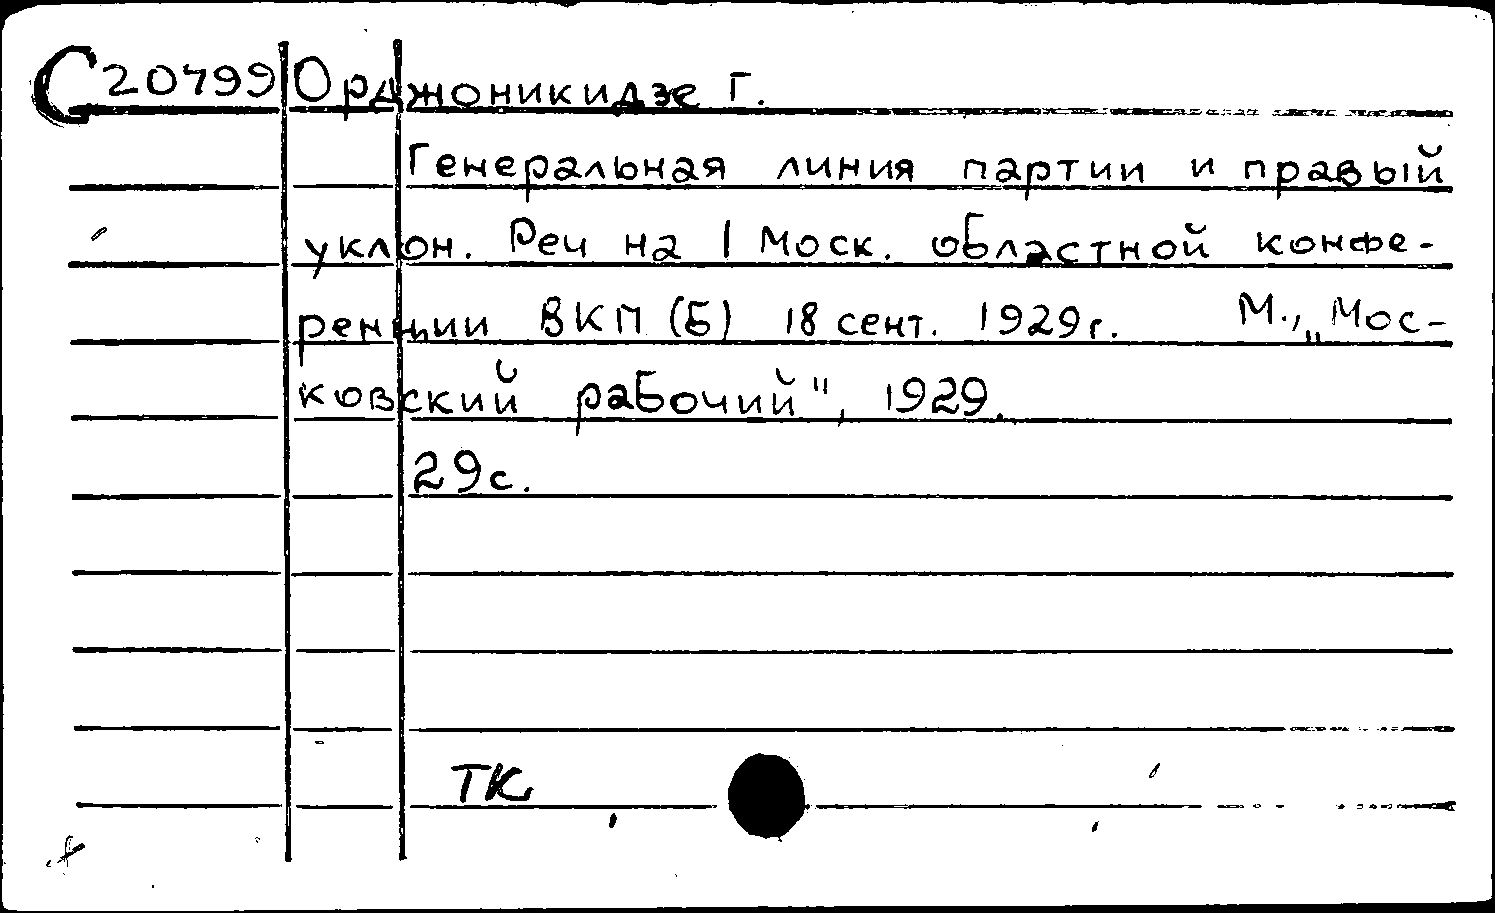 С20799 Орджоникидзе Г.
Генеральная линия партии и правый
уклон. Реч на I Моск. областной конфе-
ренции ВКП (Б) 18 сент. 1929г. М., „Мос-
ковский рабочий", 1929.
29с.
ТК